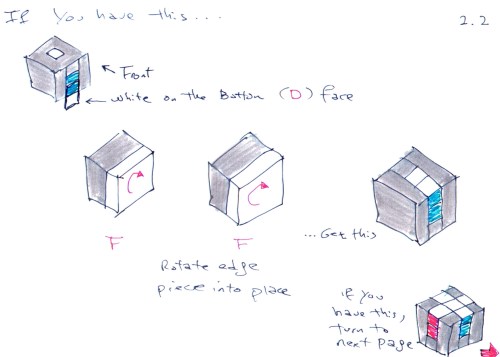 If You have this...
2.2
Front
white on the Bottom (D) face
F
F
Rotate edge
piece into place
...Get this
if you
have this,
turn to
next page